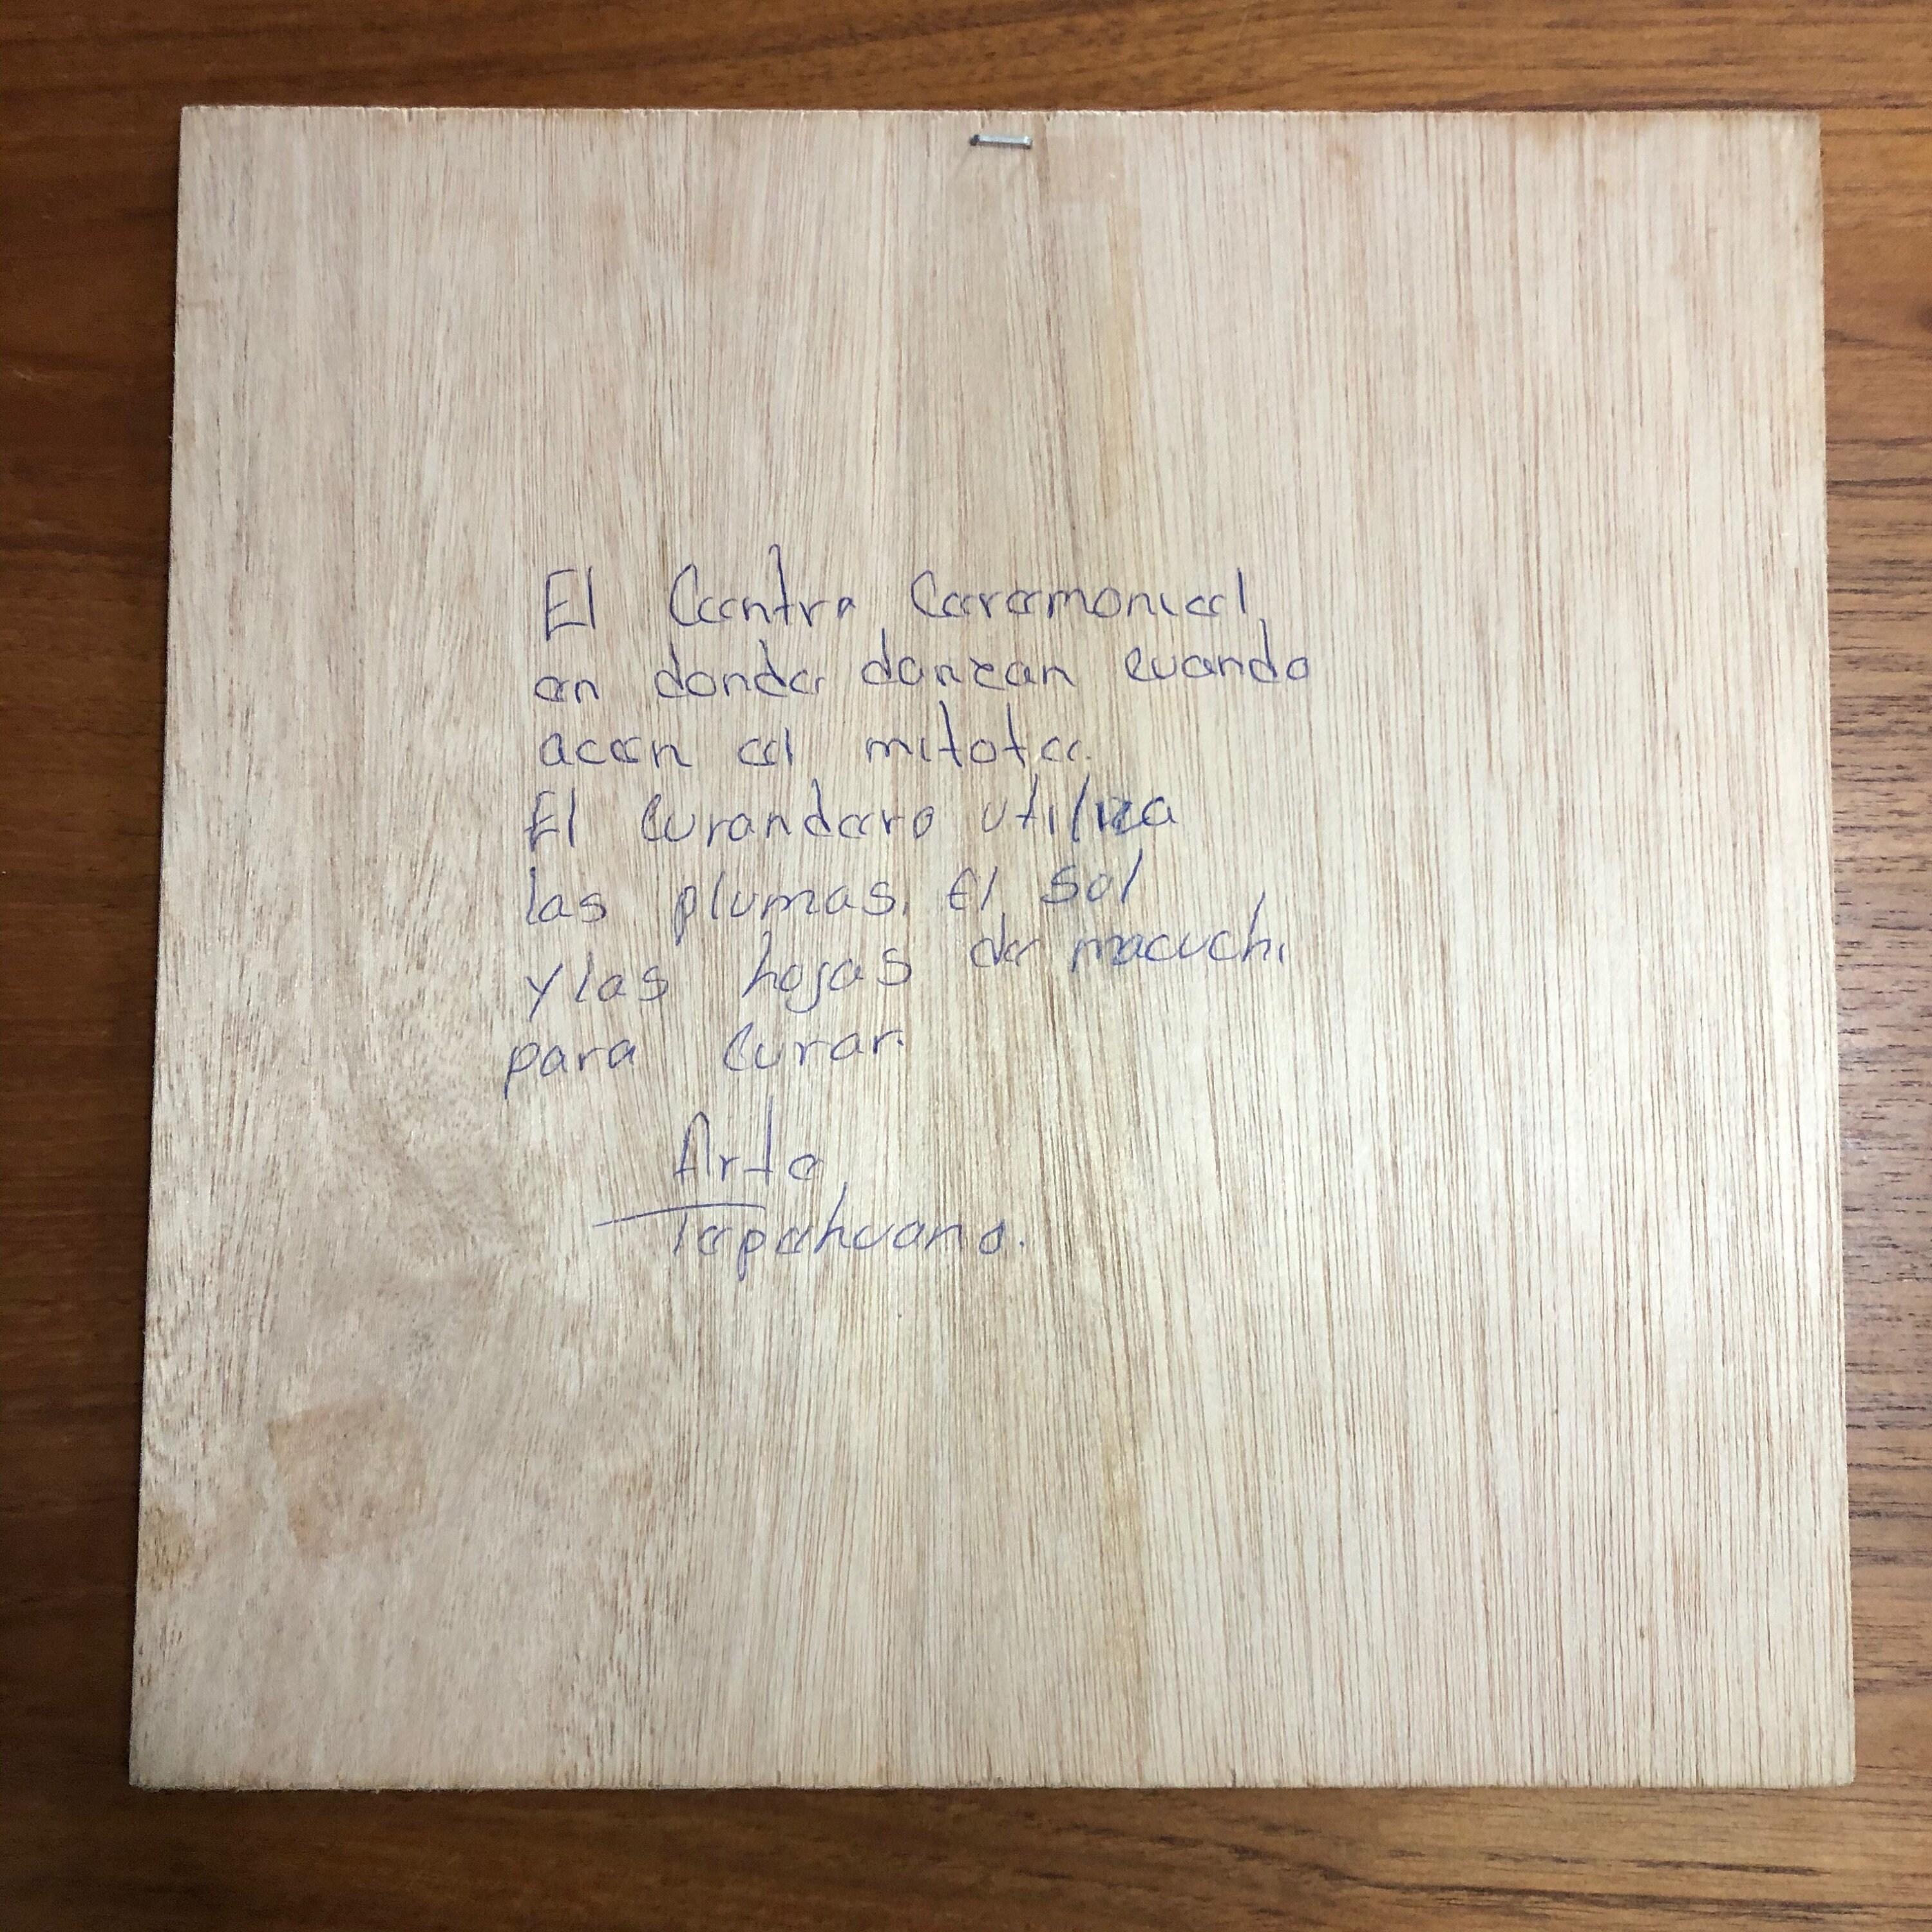 El Centro Ceremonial
en donde danzan cuando
acen el mitote.
El curandero utiliza
las plumas, El sol
y las hojas de macuchi
para curar.
Arte
Tepehuano.